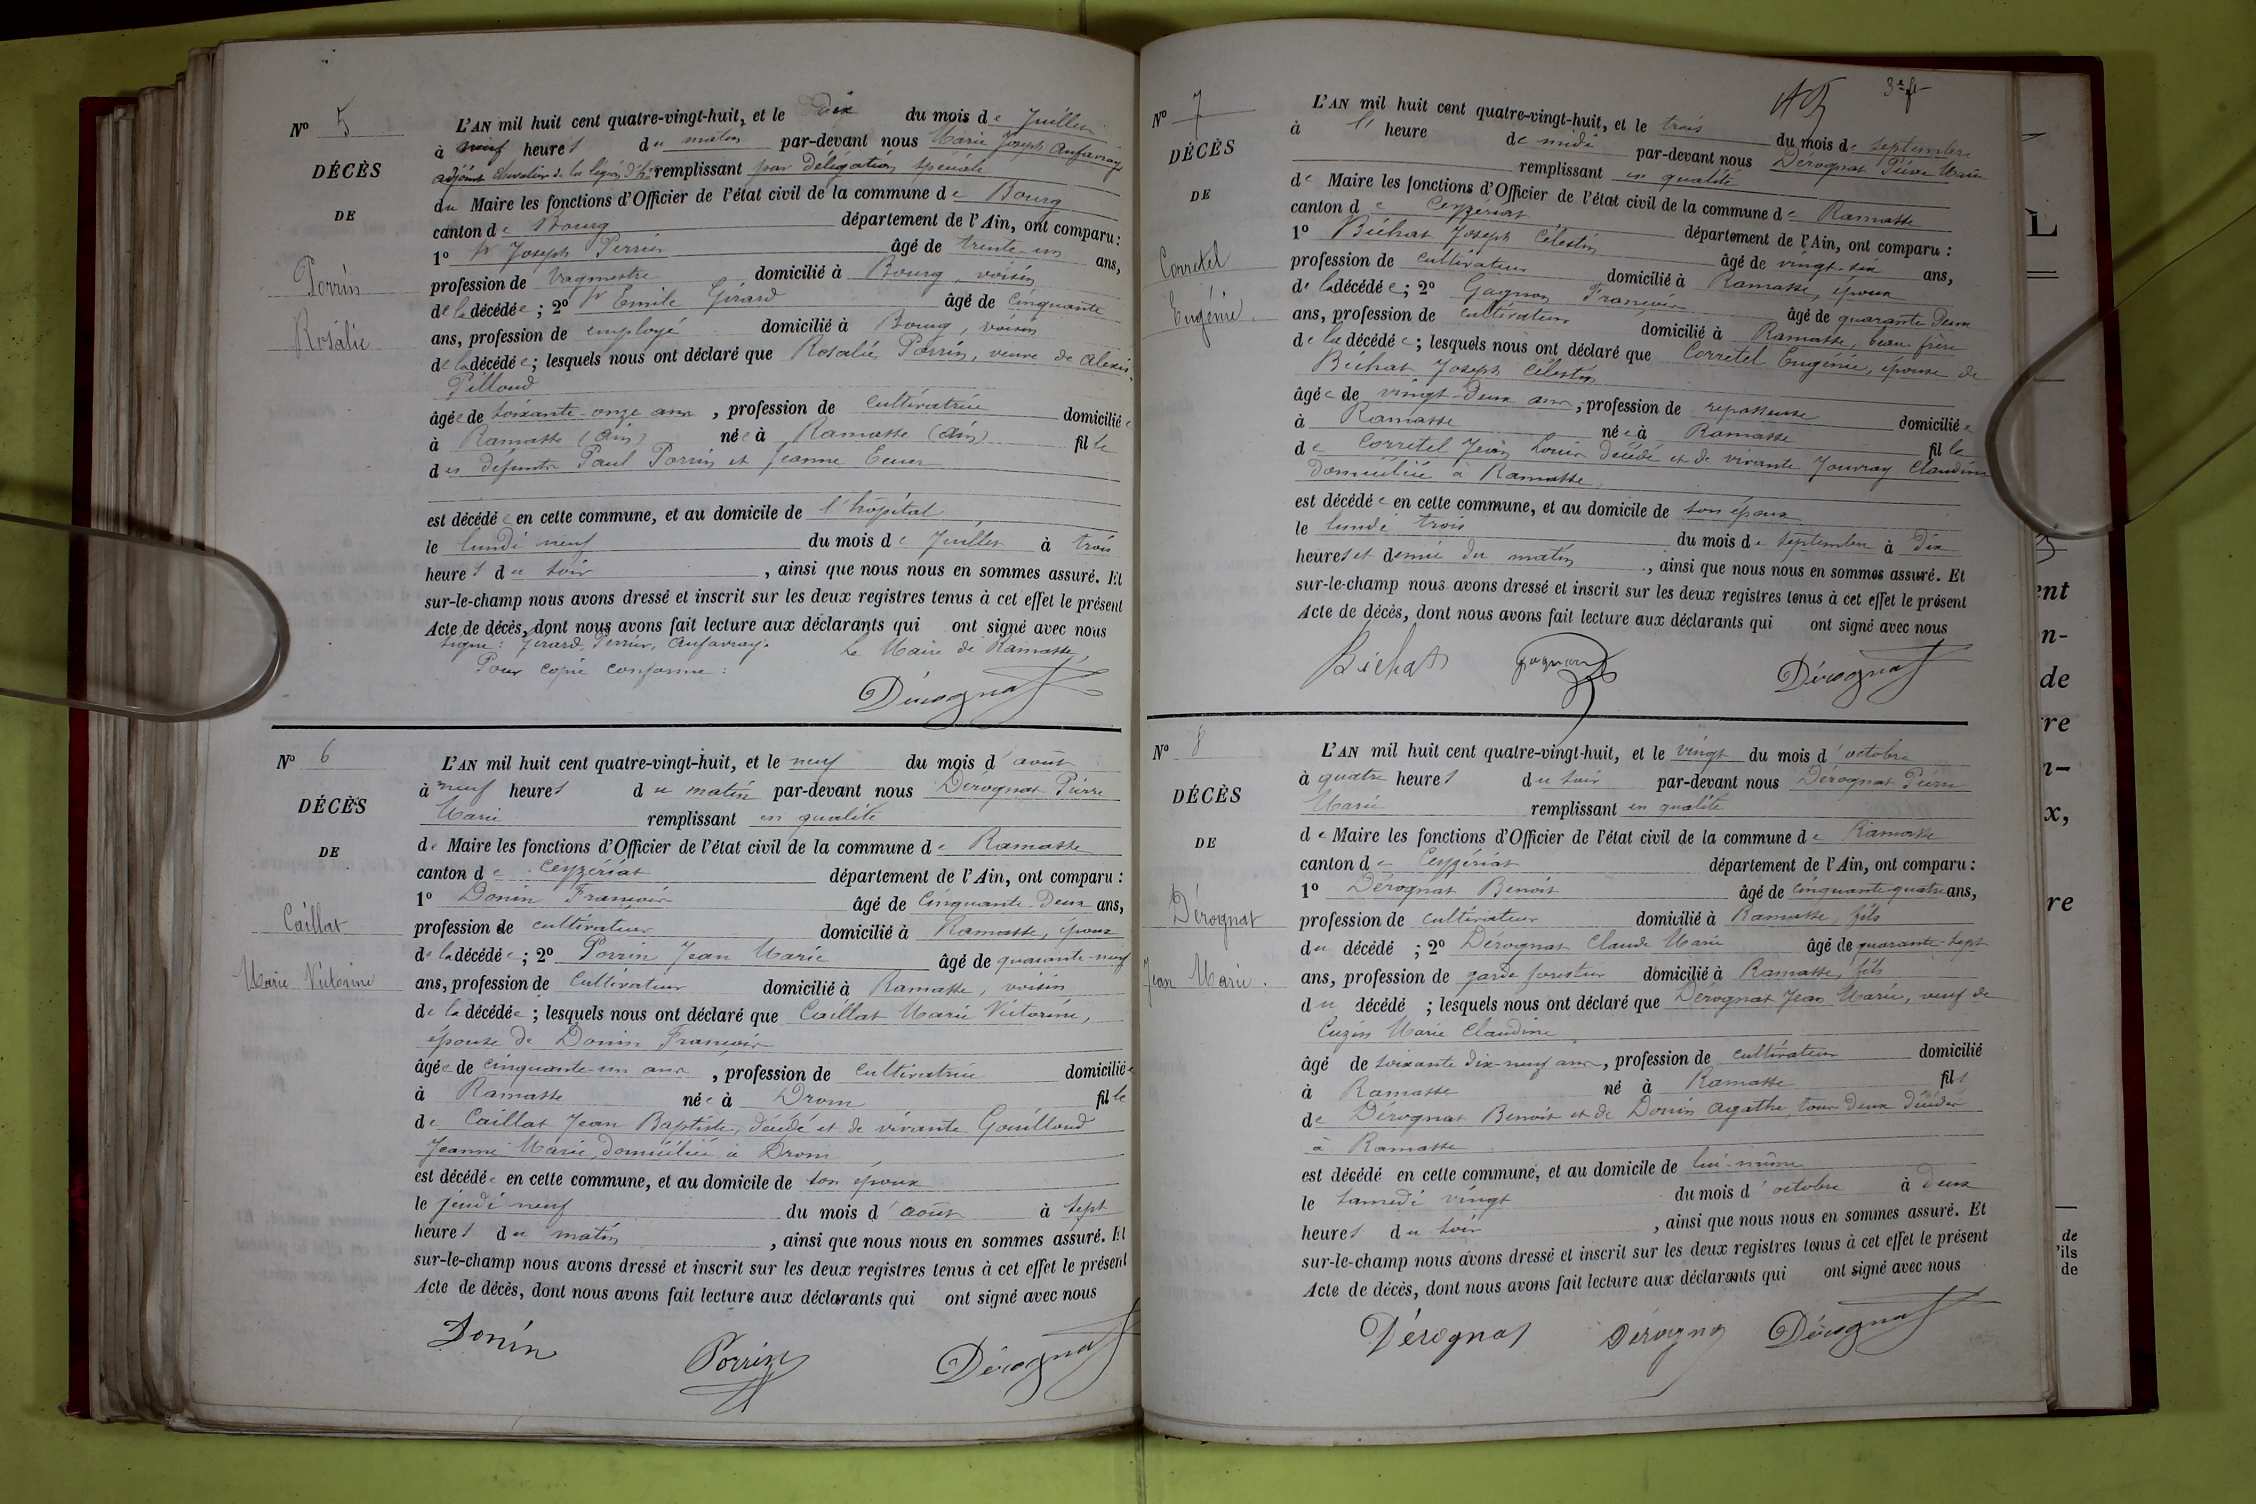 Nº 5
DÉCÈS
DE
Porrin
Rosalie
L'AN mil huit cent quatre-vingt-huit, et le Dix du mois de Juillet
à neuf heures du matin par-devant nous Marie Joseph Aufavray
adjoint Chevalier de la légion d'hr remplissant par délégation spéciale
du Maire les fonctions d'Officier de l'état civil de la commune de Bourg
canton de Bourg département de l'Ain, ont comparu :
1º Sr Joseph Perrin âgé de trente un ans,
profession de vagmestre domicilié à Bourg, voisin
de la décédée ; 2º Sr Emile Gérard âgé de Cinquante
ans, profession de employé domicilié à Bourg, voisin
de la décédée ; lesquels nous ont déclaré que Rosalie Porrin, veuve de Alexis
Pilloud
âgée de soixante-onze ans, profession de Cultivatrice domiciliée
à Ramasse (Ain) née à Ramasse (Ain) fille
des défunts Paul Porrin et Jeanne
est décédée en cette commune, et au domicile de l'hôpital
le lundi neuf du mois de Juillet à trois
heures du soir, ainsi que nous nous en sommes assuré. Et
sur-le-champ nous avons dressé et inscrit sur les deux registres tenus à cet effet le présent
Acte de décès, dont nous avons fait lecture aux déclarants qui ont signé avec nous
Signé : Gérard, Perrin, Aufavray. Le Maire de Ramasse,
Pour copie conforme :
Dérognat
Nº 6
DÉCÈS
DE
Caillat
Marie Victorine
L'AN mil huit cent quatre-vingt-huit, et le neuf du mois d'août
à neuf heures du matin par-devant nous Dérognat Pierre
Marie remplissant en qualité
de Maire les fonctions d'Officier de l'état civil de la commune de Ramasse
canton de Ceyzériat département de l'Ain, ont comparu :
1º Donin François âgé de Cinquante-Deux ans,
profession de cultivateur domicilié à Ramasse, époux
de la décédée ; 2º Porrin Jean Marie âgé de quarante-neuf
ans, profession de Cultivateur domicilié à Ramasse, voisin
de la décédée ; lesquels nous ont déclaré que Caillat Marie Victorine,
épouse de Donin François
âgée de cinquante-un ans, profession de cultivatrice domiciliée
à Ramasse née à Drom fille
de Caillat Jean Baptiste, décédé et de vivante Gouilloud
Jeanne Marie, domiciliée à Drom
est décédée en cette commune, et au domicile de son époux
le jeudi neuf du mois d'août à sept
heures du matin, ainsi que nous nous en sommes assuré. Et
sur-le-champ nous avons dressé et inscrit sur les deux registres tenus à cet effet le présent
Acte de décès, dont nous avons fait lecture aux déclarants qui ont signé avec nous
Donin Porrin Dérognat
3e ft
Nº 7
DÉCÈS
DE
Corretel
Eugénie.
L'AN mil huit cent quatre-vingt-huit, et le trois du mois de Septembre
à 1 heure de midi par-devant nous Dérognat Pierre Marie
remplissant en qualité
de Maire les fonctions d'Officier de l'état civil de la commune de Ramasse
canton de Ceyzériat département de l'Ain, ont comparu :
1º Bichat Joseph Célestin âgé de vingt-six ans,
profession de cultivateur domicilié à Ramasse, époux
de la décédée ; 2º Gagnon François âgé de quarante Deux
ans, profession de cultivateur domicilié à Ramasse, beau-frère
de la décédée ; lesquels nous ont déclaré que Corretel Eugénie, épouse de
Bichat Joseph Célestin
âgée de vingt-Deux ans, profession de repasseuse domiciliée
à Ramasse née à Ramasse fille
de Corretel Jean Louis décédé et de vivante Jouvray Claudine
Domiciliée à Ramasse
est décédée en cette commune, et au domicile de son époux
le lundi trois du mois de septembre à Dix
heures et demie du matin, ainsi que nous nous en sommes assuré. Et
sur-le-champ nous avons dressé et inscrit sur les deux registres tenus à cet effet le présent
Acte de décès, dont nous avons fait lecture aux déclarants qui ont signé avec nous
Bichat Gagnon Dérognat
Nº 8
DÉCÈS
DE
Dérognat
Jean Marie.
L'AN mil huit cent quatre-vingt-huit, et le vingt du mois d'octobre
à quatre heures du soir par-devant nous Dérognat Pierre
Marie remplissant en qualité
de Maire les fonctions d'Officier de l'état civil de la commune de Ramasse
canton de Ceyzériat département de l'Ain, ont comparu :
1º Dérognat Benoit âgé de Cinquante-quatre ans,
profession de cultivateur domicilié à Ramasse, fils
du décédé ; 2º Dérognat Claude Marie âgé de quarante-sept
ans, profession de garde forestier domicilié à Ramasse, fils
du décédé ; lesquels nous ont déclaré que Dérognat Jean Marie, veuf de
Cuzin Marie Claudine
âgé de soixante Dix-neuf ans, profession de cultivateur domicilié
à Ramasse né à Ramasse fils
de Dérognat Benoit et de Donin Agathe tous Deux décédés
à Ramasse
est décédé en cette commune, et au domicile de lui-même
le samedi vingt du mois d'octobre à Deux
heures du soir, ainsi que nous nous en sommes assuré. Et
sur-le-champ nous avons dressé et inscrit sur les deux registres tenus à cet effet le présent
Acte de décès, dont nous avons fait lecture aux déclarants qui ont signé avec nous
Dérognat Dérognat Dérognat